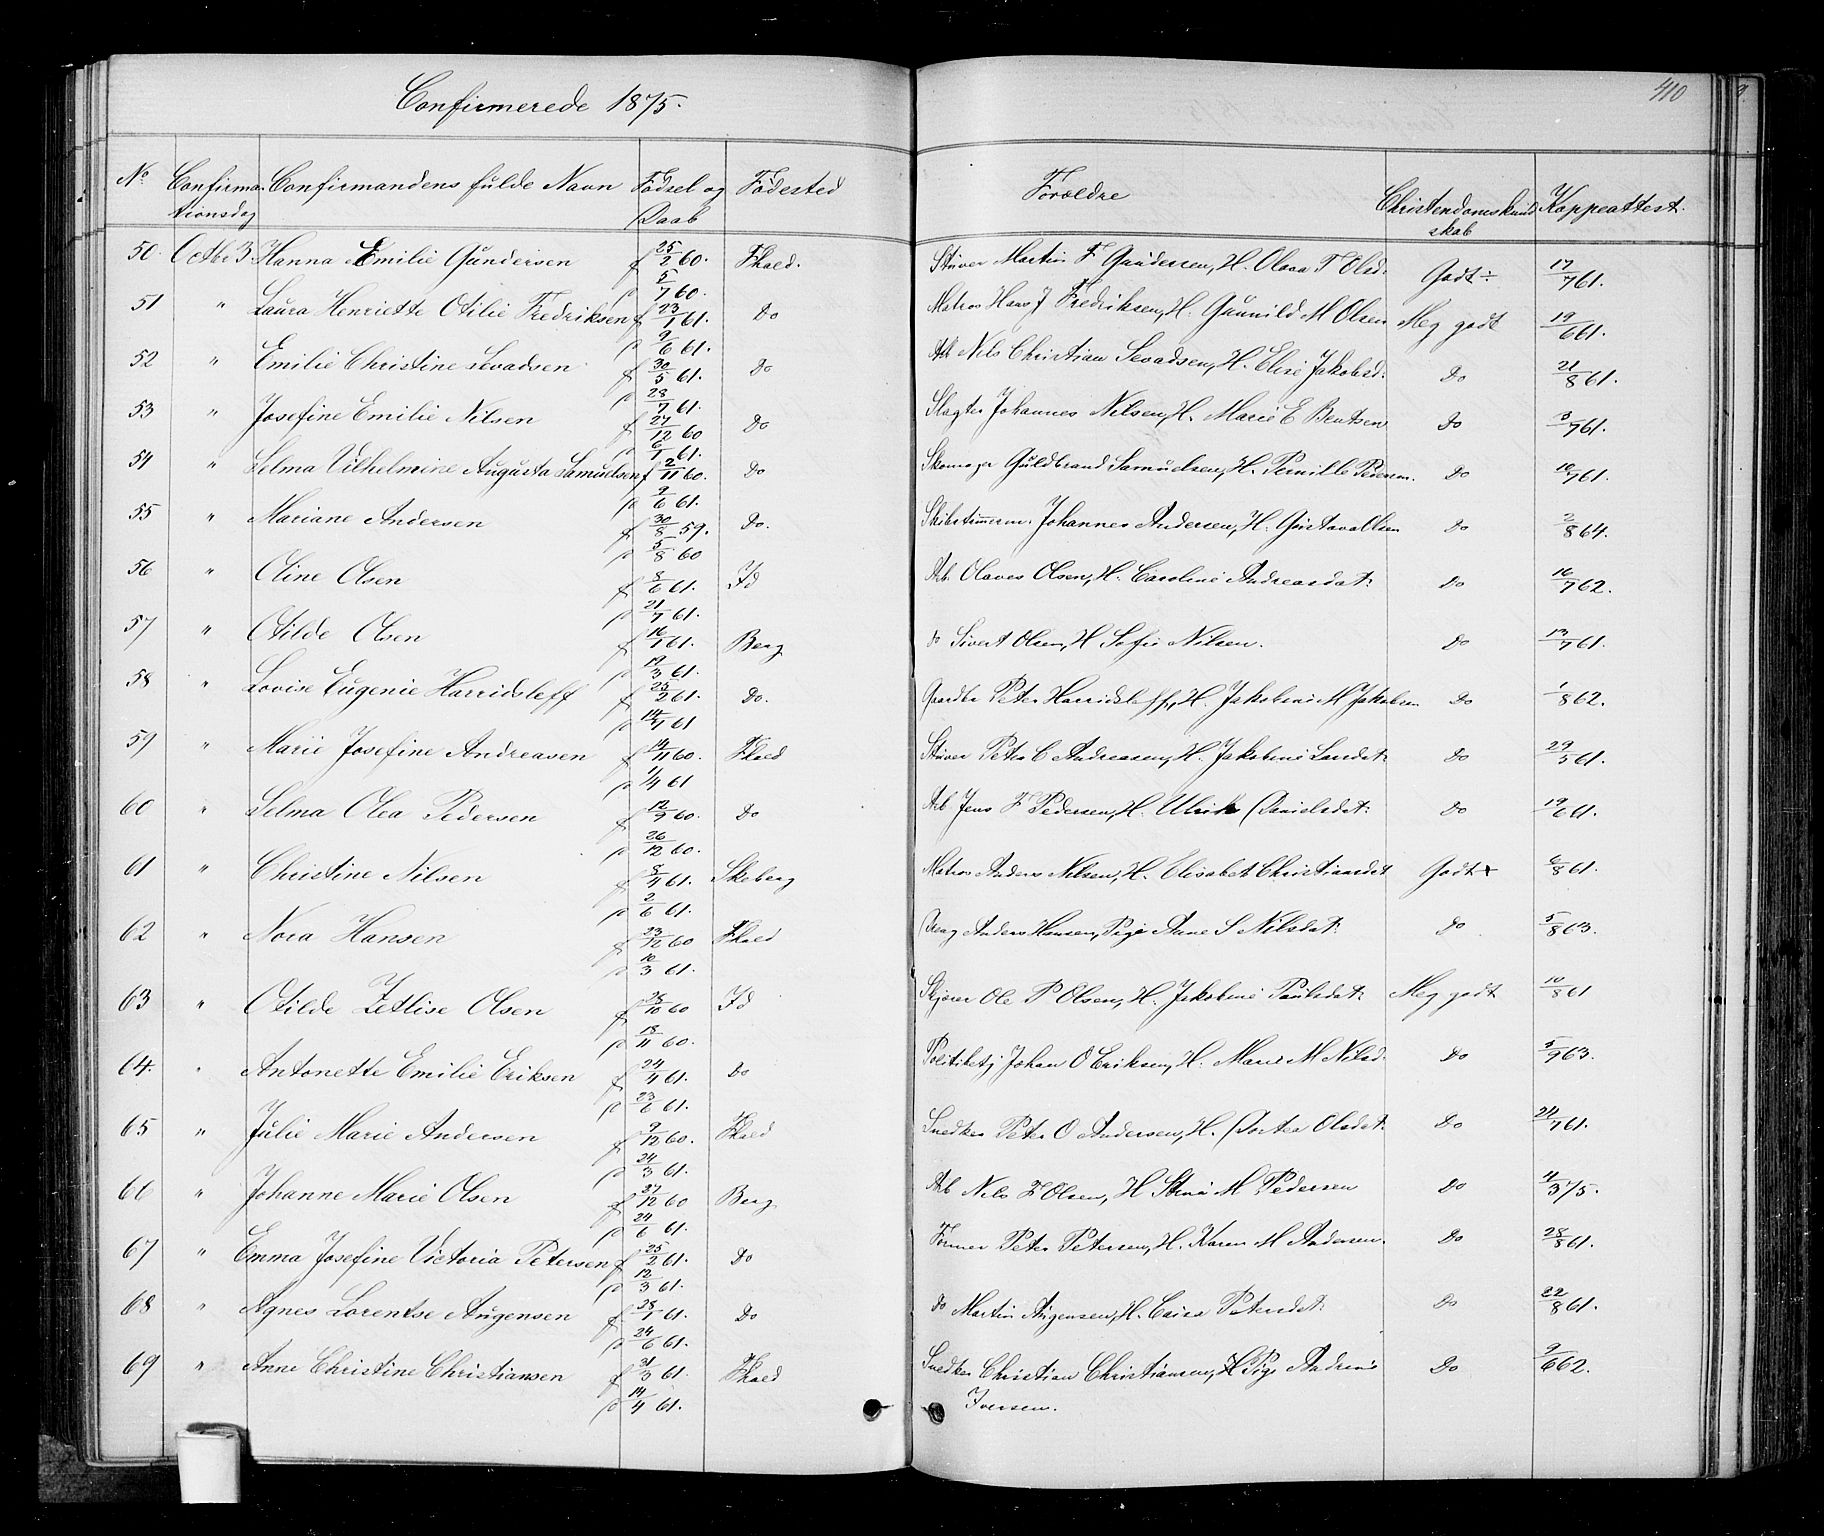 Confirmerede 1875.
410
No Confirma- Confirmandens fulde Navn Fødsel og Fødested Forældre Christendomskund- Koppeattest.
tionsdag Daab skab
50. Octbr 3. Hanna Emilie Gundersen f 25/2 60. Fhald. Stuver Martin F Gundersen, H. Olava T Olsd. Godt ÷ 17/7 61.
p 5/7 60.
51 " Laura Henriette Otilie Fredriksen f 23/1 61. Do Matros Hans J Fredriksen, H. Gunnild M Olsen Meg godt 19/6 61.
p 2/6 61.
52 " Emilie Christine Sevadsen f 30/5 61. Do Arb Nils Christian Sevadsen, H. Elise Jakobsd. Do 21/8 61.
p 28/7 61.
53 " Josefine Emilie Nilsen f 27/12 60 Do Slagter Johannes Nilsen, H. Marie E Bentsen Do 3/7 61.
p 6/1 61.
54 " Selma Vilhelmine Augusta Samuelsen f 2/11 60. Do Skomager Guldbrand Samuelsen, H. Pernille Pedersen. Do 10/7 61.
p 9/6 61.
55 " Mariane Andersen f 30/8 59. Do. Skibstimmerm. Johannes Andersen, H. Gustava Olsen Do 2/8 64.
p 5/8 60
56 " Oline Olsen f 8/6 61. Id Arb. Olaves Olsen, H. Caroline Andreasdat: Do 16/7 62.
p 21/7 61.
57 " Otilde Olsen f 16/1 61. Berg do Sivert Olsen, H Sofie Nilsen. Do 13/7 61.
p 19/3 61.
58 " Lovise Eugenie Harridsleff f 23/2 61. Do. Gaardbr Peter Harridsleff, H. Jakobine M Jakobsen Do 1/8 62.
p 14/4 61
59 " Marie Josefine Andreasen f 14/11 60. Fhald Stuver Peter C Andreasen, H. Jakobine Larsdat: Do 29/5 61.
p 1/4 61
60 " Selma Olea Pedersen f 12/9 60. Do Arb Jens F Pedersen, H. Ulrik Danielsdat: Do 19/6 61.
p 26/12 60.
61 " Christine Nilsen f 8/4 61. Skeberg Matros Anders Nilsen, H. Elisabet Christiansdat Godt + 6/8 61.
p 2/6 61.
62 " Nora Hansen f 23/12 60 Fhald Dreng Anders Hansen, Pige Anne S Nilsdat: Do 5/8 63.
p 10/3 61.
63 " Otilde Zetlise Olsen f 28/10 60 Id Skjærer Ole P Olsen, H. Jakobine Paulsdat: Meg godt 10/8 61
p 18/11 60.
64. " Antonette Emilie Eriksen f 24/4 61. Do Politibetj Johan O Eriksen, H. Marie M Nilsd. Do 5/9 63.
p 23/6 61.
65 " Julie Marie Andersen f 9/12 60. Fhald Snedker Peter O Andersen, H. Dortea Olsdat: Do 24/7 61.
p 24/3 61.
66 " Johanne Marie Olsen f 27/12 60 Berg Arb Nils F Olsen, H Stine M Pedersen Do 4/3 75.
p 24/6 61.
67 " Emma Josefine Victoria Petersen f 25/2 61. Do Former Peter Petersen, H. Karen M Andersen. Do 28/8 61.
p 12/3 61.
68 " Agnes Lorentse Augensen f 28/1 61. Do do Martin Augensen, H. Petersdat: Do 22/8 61.
p 24/6 61.
69 " Anne Christine Christiansen f 31/3 61. Fhald Snedker Christian Christiansen, Pige Andrine Do 9/6 62.
p 14/4 61. Iversen.